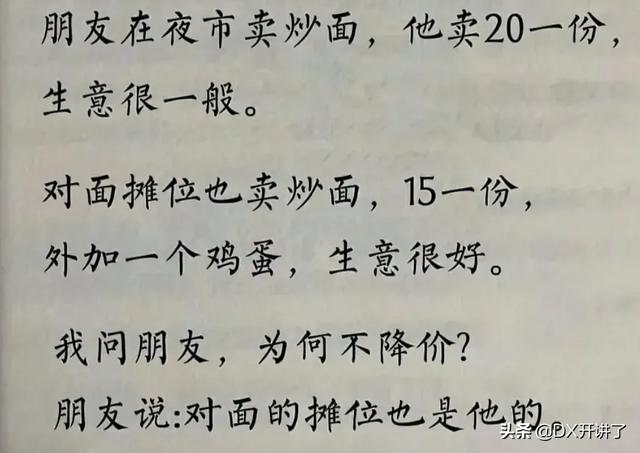 朋友在夜市卖炒面，他卖20一份，
生意很一般。
对面摊位也卖炒面，15一份，
外加一个鸡蛋，生意很好。
我问朋友，为何不降价?
朋友说:对面的摊位也是他的。
头条 @DX开讲了